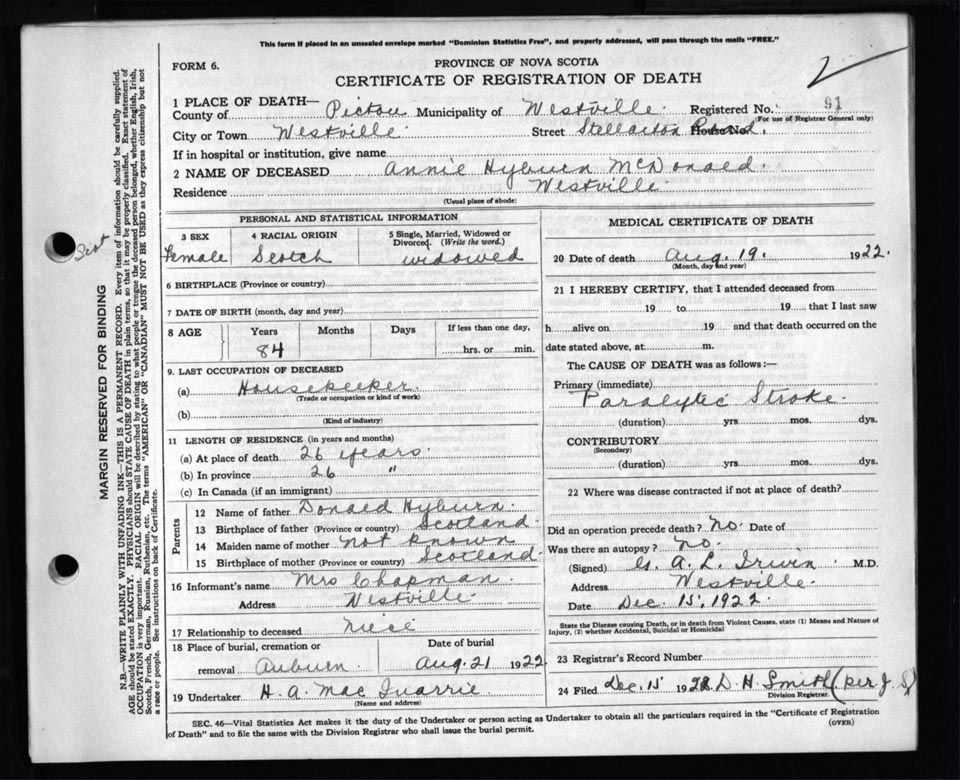 This form if placed in an unsealed envelope marked "Dominion Statistics Free", and properly addressed, will pass through the mails "FREE."
FORM 6.
PROVINCE OF NOVA SCOTIA
CERTIFICATE OF REGISTRATION OF DEATH
1 PLACE OF DEATH—
County of Pictou Municipality of Westville. Registered No. 91
(For use of Registrar General only)
City or Town Westville. Street Stellarton Road House No.
If in hospital or institution, give name
2 NAME OF DECEASED Annie Hyburn McDonald.
Residence Westville.
(Usual place of abode)
PERSONAL AND STATISTICAL INFORMATION
3 SEX 4 RACIAL ORIGIN 5 Single, Married, Widowed or Divorced. (Write the word.)
Female Scotch widowed
6 BIRTHPLACE (Province or country)
7 DATE OF BIRTH (month, day and year)
8 AGE Years Months Days If less than one day,
84 hrs. or min.
9. LAST OCCUPATION OF DECEASED
(a) Housekeeper.
(Trade or occupation or kind of work)
(b)
(Kind of industry)
11 LENGTH OF RESIDENCE (in years and months)
(a) At place of death 26 years.
(b) In province 26 "
(c) In Canada (if an immigrant)
Parents
12 Name of father Donald Hyburn.
13 Birthplace of father (Province or country) Scotland
14 Maiden name of mother not known
15 Birthplace of mother (Province or country) Scotland
16 Informant's name Mrs Chapman.
Address Westville.
17 Relationship to deceased niece
18 Place of burial, cremation or Date of burial
removal Auburn Aug. 21 1922
19 Undertaker H. A. MacQuarrie.
(Name and address)
MEDICAL CERTIFICATE OF DEATH
20 Date of death Aug. 19. 1922.
(Month, day and year)
21 I HEREBY CERTIFY, that I attended deceased from
19 to 19 that I last saw
h alive on 19 and that death occurred on the
date stated above, at m.
The CAUSE OF DEATH was as follows:—
Primary (immediate)
Paralytic Stroke.
(duration) yrs. mos. dys.
CONTRIBUTORY
(Secondary)
(duration) yrs. mos. dys.
22 Where was disease contracted if not at place of death?
Did an operation precede death? no. Date of
Was there an autopsy? no.
(Signed) G. A. L. Irwin M.D.
Address Westville.
Date Dec. 15, 1922.
State the Disease causing Death, or in death from Violent Causes, state (1) Means and Nature of Injury, (2) whether Accidental, Suicidal or Homicidal
23 Registrar's Record Number
24 Filed Dec. 15 1922 D. H. Smith (per J. S)
Division Registrar.
SEC. 46—Vital Statistics Act makes it the duty of the Undertaker or person acting as Undertaker to obtain all the particulars required in the "Certificate of Registration
of Death" and to file the same with the Division Registrar who shall issue the burial permit.
(OVER)
MARGIN RESERVED FOR BINDING
N.B.—WRITE PLAINLY WITH UNFADING INK—THIS IS A PERMANENT RECORD. Every item of information should be carefully supplied.
AGE should be stated EXACTLY. PHYSICIANS should STATE CAUSE OF DEATH in plain terms, so that it may be properly classified. Exact statement of
OCCUPATION is very important. RACIAL ORIGIN will be described by stating to what people or tongue the deceased person belonged, whether English, Irish,
Scotch, French, German, Russian, Ruthenian, etc. The terms "AMERICAN" OR "CANADIAN" MUST NOT BE USED as they express citizenship but not
a race or people. See instructions on back of Certificate.